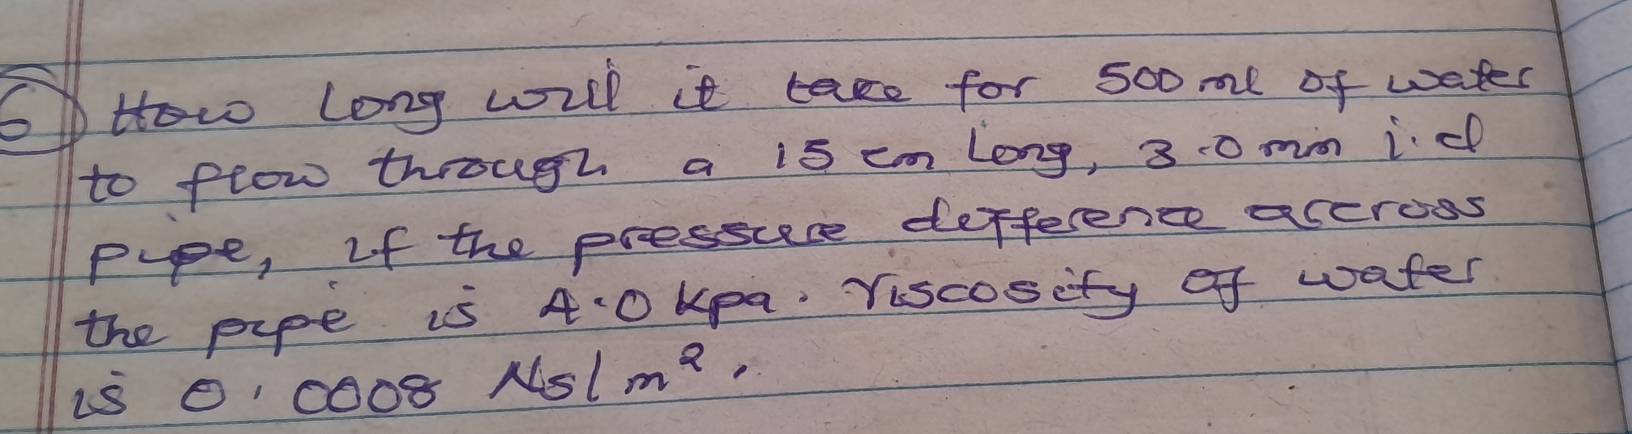 6) How long will it take for 500 ml of water
to flow through a 15 cm long, 3.0 mm i.d
pipe, if the pressure difference accross
the pipe is 4.0 kpa. Viscosity of water
is 0.0008 Ns/m².